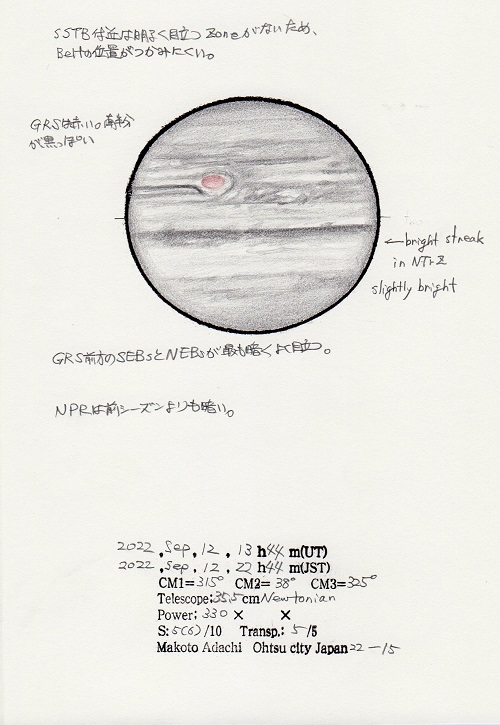 SSTB付近は明るく目立つZoneがないため、
Beltの位置がつかみにくい。
GRSは赤い。前部分
が黒っぽい
←bright streak
in NTrZ
slightly bright
GRS前方のSEBsとNEBsが最も暗くよく目立つ。
NPRは前シーズンよりも暗い。
2022,Sep,12,13h44m(UT)
2022,Sep,12,22h44m(JST)
CM1=315° CM2=38° CM3=325°
Telescope:35.5cmNewtonian
Power:330× ×
S:5(6)/10 Transp.:5/5
Makoto Adachi Ohtsu city Japan 22-15